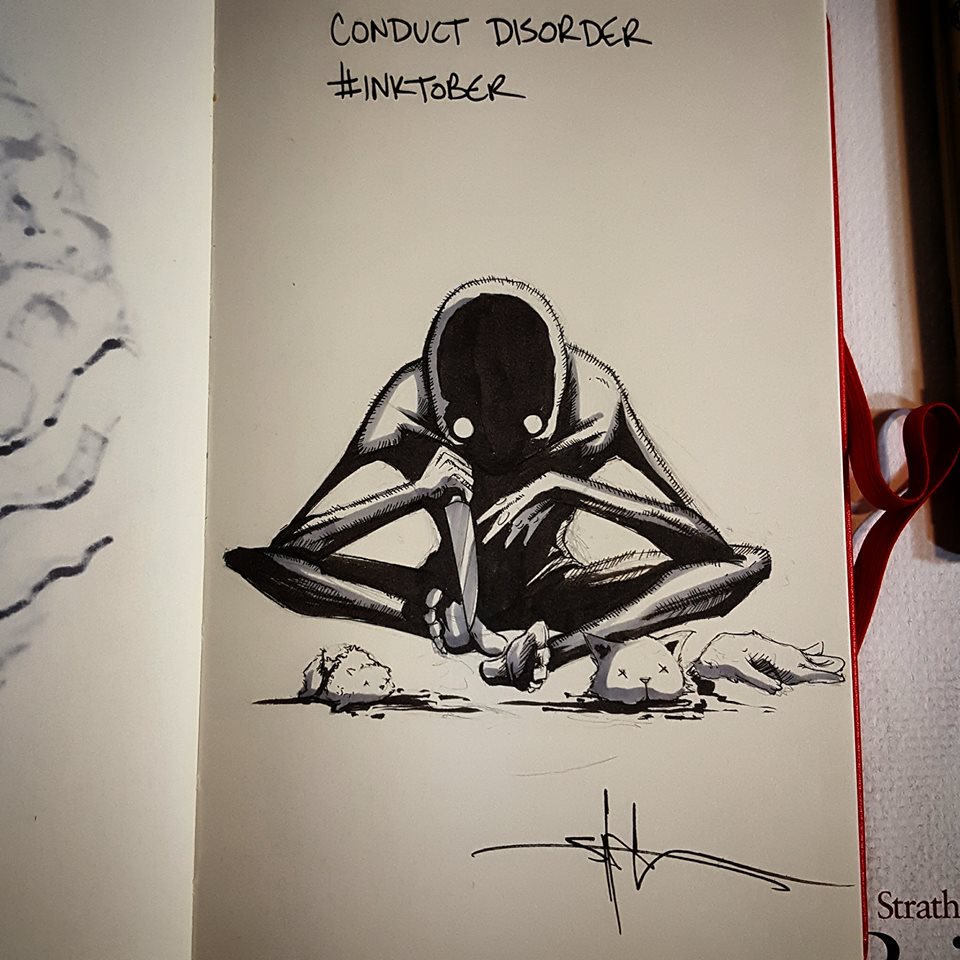 CONDUCT DISORDER
#INKTOBER
Strath